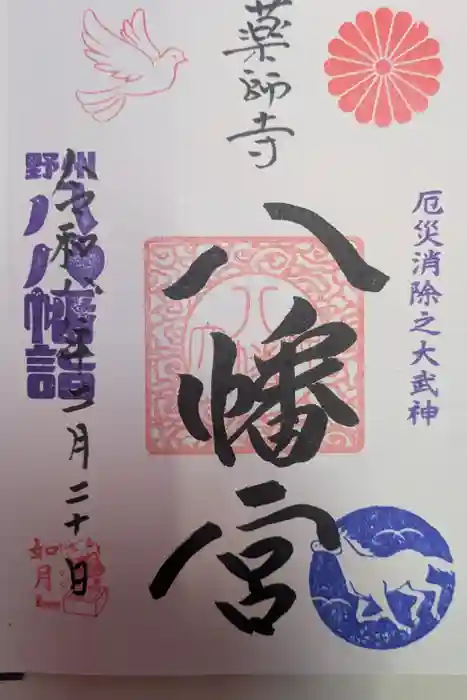 薬師寺
厄災消除之大武神
八幡宮
野州
八八幡詣
令和六年二月二十日
如月